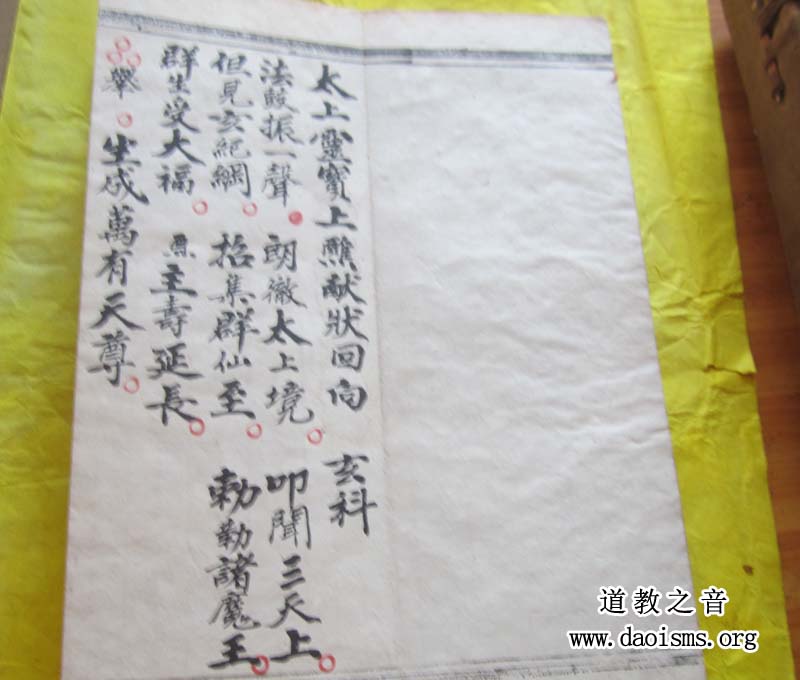 太上靈寶上醮献狀回向 玄科
法鼓振一聲 朗徹太上境 叩聞三天上
但見玄紀綱 招集群仙至 勅勒諸魔王
群生受大福 主壽延長
舉 生成萬有天尊
道教之音
www.daoisms.org